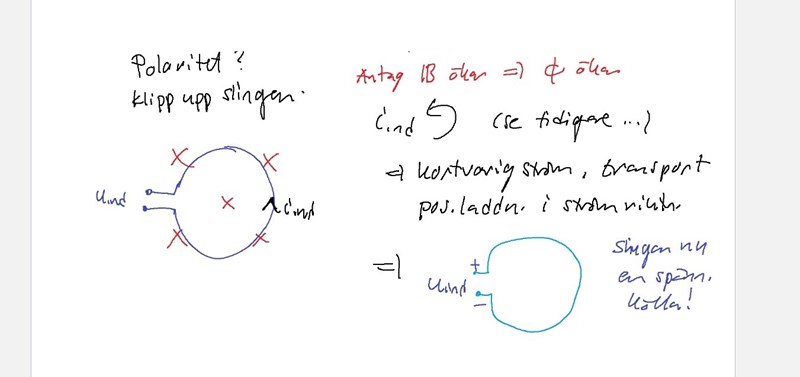 Polaritet?
Klipp upp slingan.
Antag B ökar => ϕ ökar
i ind (se tidigare ...)
=> kortvarig ström, transport
pos. laddn. i strömriktn.
U ind
i ind
=>
+
U ind
−
Slingan nu
en spänn.
källa!